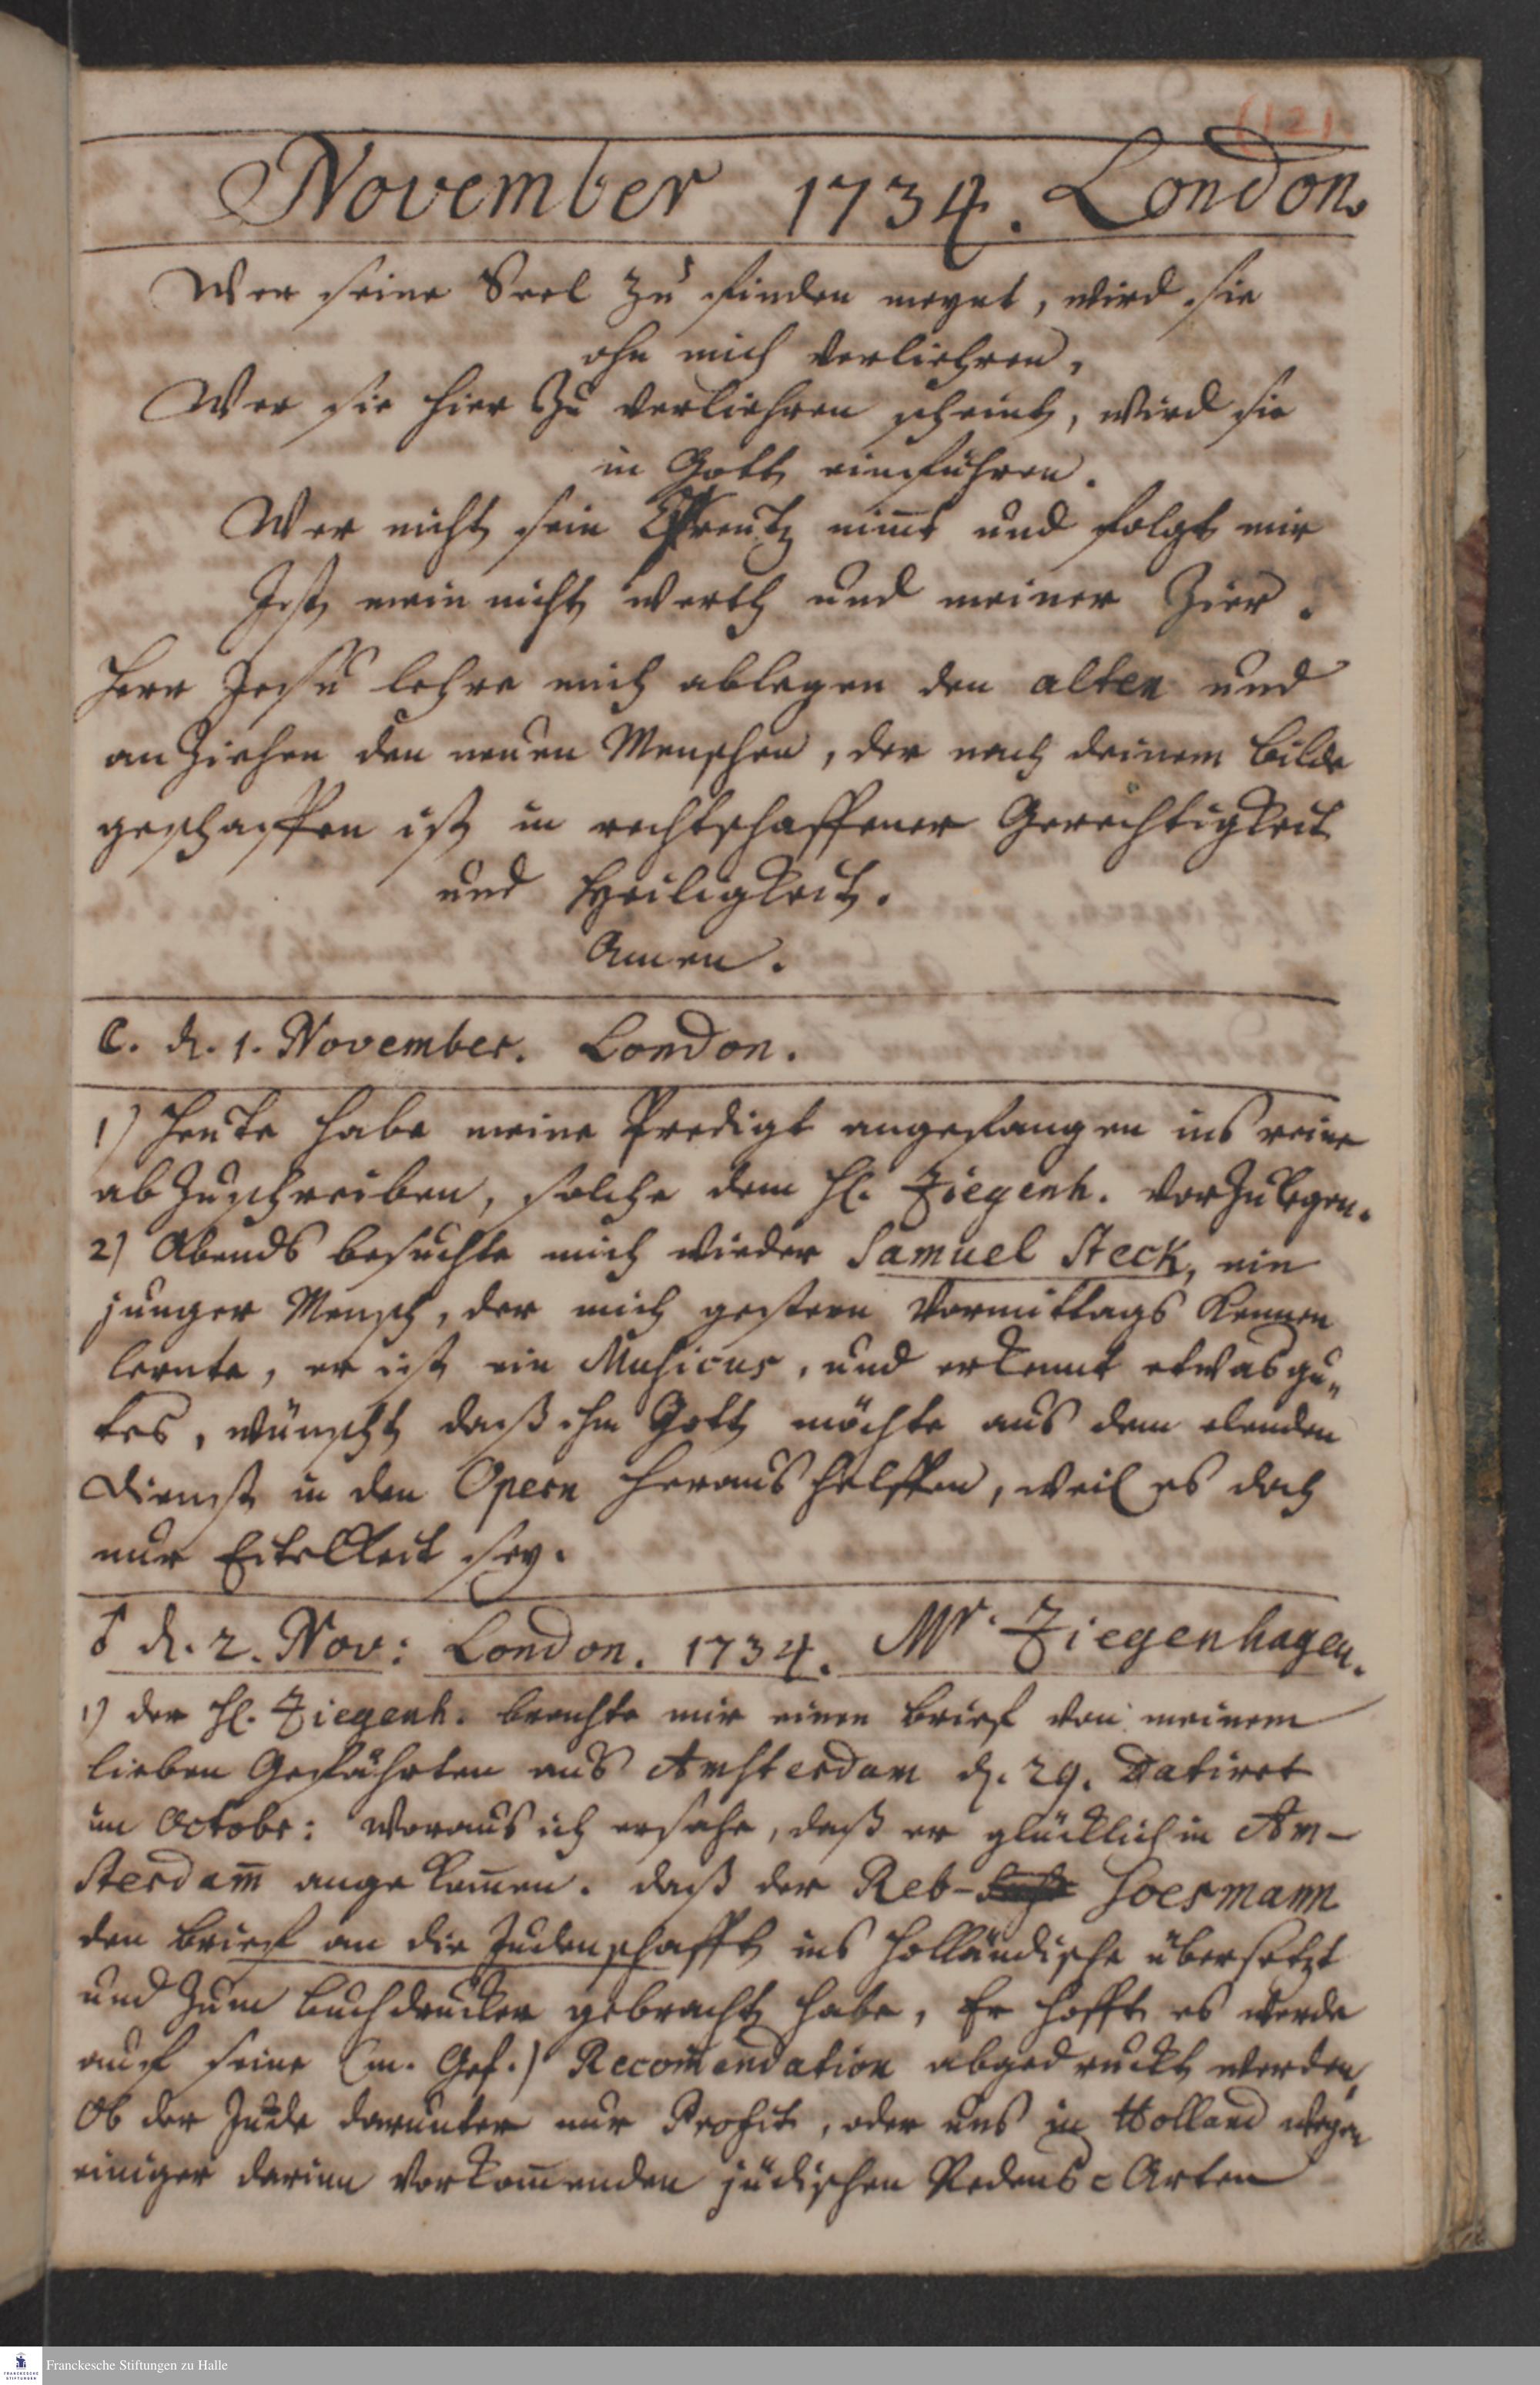 (121.
November 1734. London.
Wer seine Seel zu finden meynt, wird sie
ohn mich verliehren,
Wer sie hier zu verliehren scheint, wird sie
in Gott einführen.
Wer nicht sein Creutz nim̄t und folgt mir
Ist mein nicht werth und meiner Zier.
Herr Jesu lehre mich ablegen den alten und
anziehen den neuen Menschen, der nach deinem Bilde
geschaffen ist in rechtschaffener Gerechtigkeit
und Heiligkeit.
Amen.
☾. d. 1. November. London.
1) Heute habe meine Predigt angefangen ins reine
abzuschreiben, solche dem H. Ziegenh. vorzulegen.
2) Abends besuchte mich wieder Samuel Steck, ein
junger Mensch, der mich gestern Vormittags kennen
lernte, er ist ein Musicus, und erkennt etwas gu-
tes, wünscht daß ihm Gott möchte aus dem elenden
Dienst in den Opern heraus helffen, weil es doch
nur Eitelkeit sey.
♂ d. 2. Nov: London. 1734. Mr. Ziegenhagen.
1) der H. Ziegenh. brachte mir einen Brief von meinem
lieben Gefährten aus Amsterdam d. 29. Datiret
im Octobr: woraus ich ersahe, daß er glücklich in Am-
sterdam̄ angekom̄en. daß der Reb- Soesmann
den Brief an die Judenschafft ins Holländische übersetzt
und zum Buchdrucker gebracht habe, Er hofft es werde
auf seine (m. Gef.) Recom̄endation abgedruckt werden,
Ob der Jude darunter nur Profit, oder uns in Holland wegen
einiger darinn vorkom̄enden jüdischen Redens-Arten
Franckesche Stiftungen zu Halle